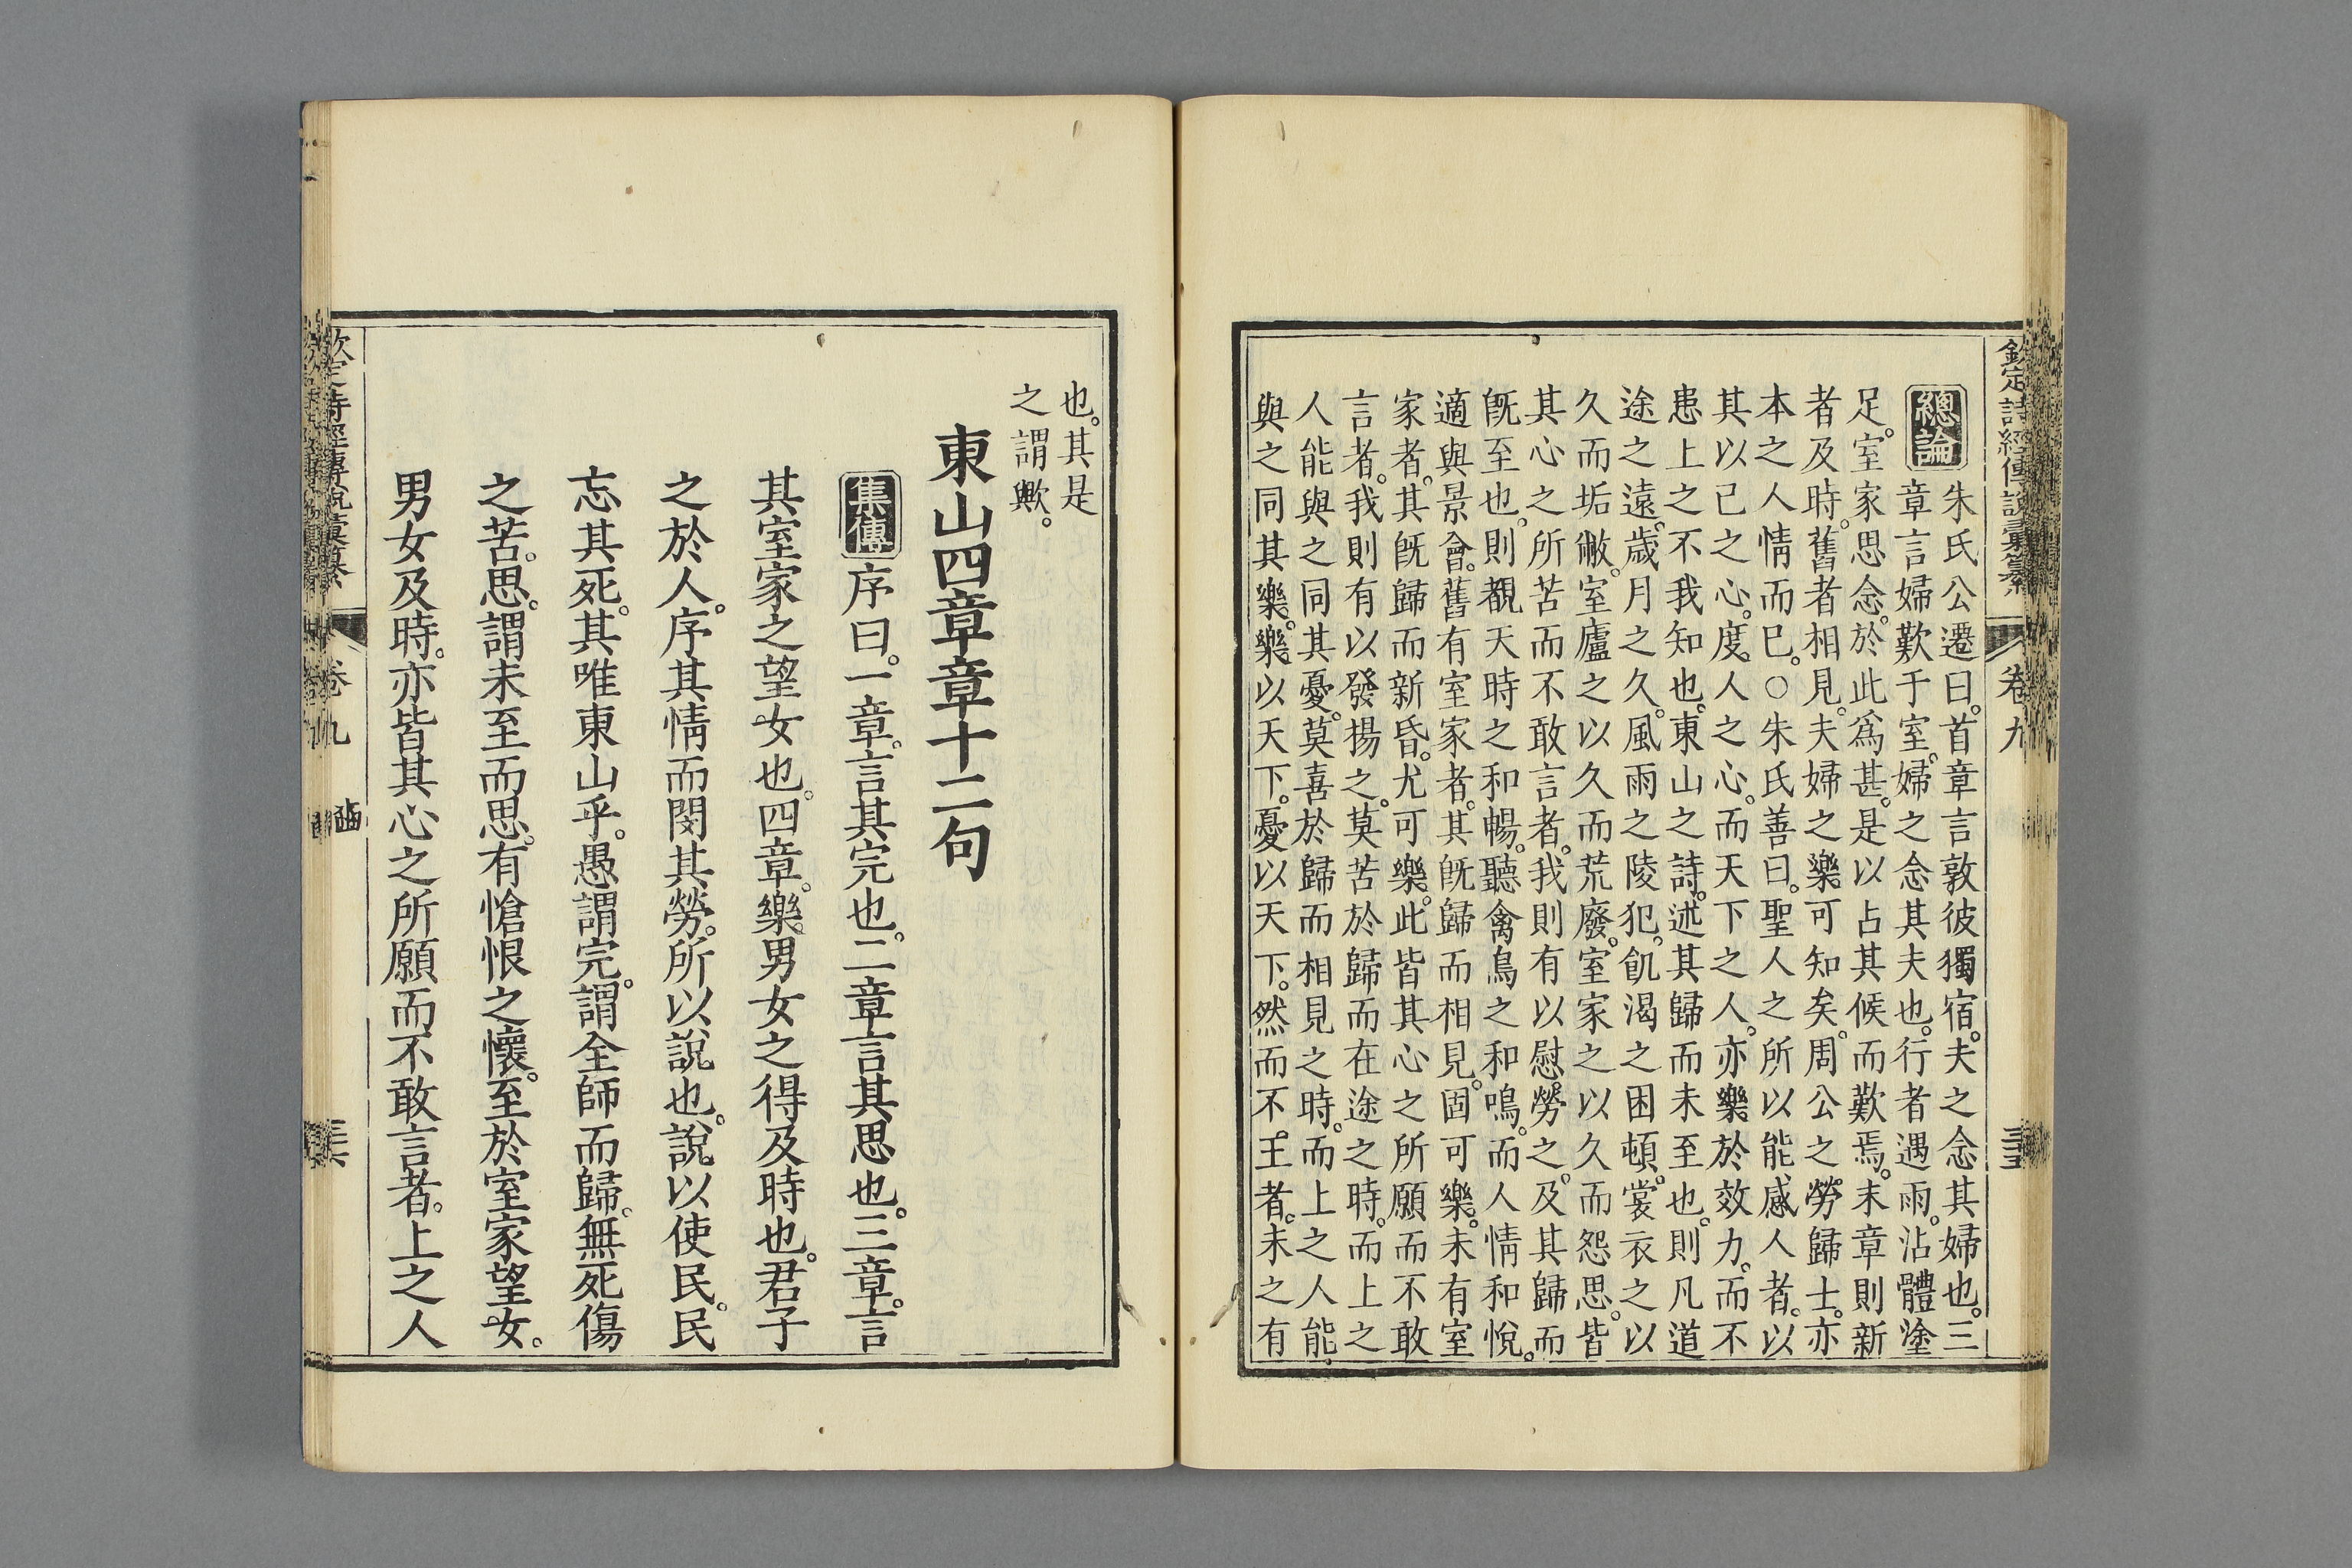 欽定詩經傳說彙纂 卷九
總論
朱氏公遷曰。首章言敦彼獨宿。夫之念其婦也。三
章言婦歎于室。婦之念其夫也。行者遇雨。沾體塗
足。室家思念。於此爲甚。是以占其候而歎焉。末章則新
者及時。舊者相見。夫婦之樂可知矣。周公之勞歸士。亦
本之人情而巳。○朱氏善曰。聖人之所以能感人者。以
其以已之心。度人之心。而天下之人。亦樂於效力。而不
患上之不我知也。東山之詩。述其歸而未至也。則凡道
途之遠。歲月之久。風雨之陵犯。飢渴之困頓。裳衣之以
久而垢敝。室廬之以久而荒廢。室家之以久而怨思。皆
其心之所苦而不敢言者。我則有以慰勞之。及其歸而
旣至也。則覩天時之和暢。聽禽鳥之和鳴。而人情和悅。
適與景會。舊有室家者。其旣歸而相見。固可樂。未有室
家者。其旣歸而新昏。尤可樂。此皆其心之所願而不敢
言者。我則有以發揚之。莫苦於歸而在途之時。而上之
人能與之同其憂。莫喜於歸而相見之時。而上之人能。
與之同其樂。樂以天下。憂以天下。然而不王者。未之有
也。其是
之謂歟。
東山四章章十二句
集傳 序曰。一章。言其完也。二章言其思也。三章。言
其室家之望女也。四章。樂男女之得及時也。君子
之於人。序其情而閔其勞。所以說也。說以使民。民
忘其死。其唯東山乎。愚謂完。謂全師而歸。無死傷
之苦。思。謂未至而思。有愴恨之懷。至於室家望女。
男女及時。亦皆其心之所願而不敢言者。上之人
欽定詩經傳說彙纂 卷九 豳